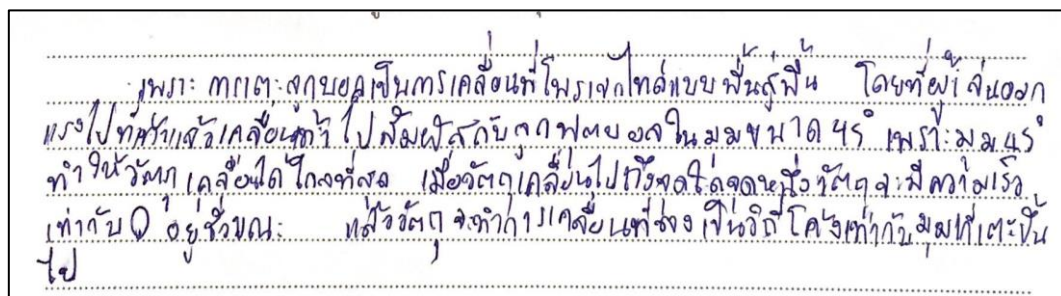 เพราะ การเตะลูกบอลเป็นการเคลื่อนที่โพรเจกไทล์แบบพื้นสู่พื้น โดยที่ผู้เล่นออก
แรงไปที่เท้าแล้วเคลื่อนเท้าไปสัมผัสกับลูกฟุตบอลในมุมขนาด 45° เพราะมุม 45°
ทำให้วัตถุเคลื่อนได้ไกลที่สุด เมื่อวัตถุเคลื่อนไปถึงจุดใดจุดหนึ่งวัตถุจะมีความเร็ว
เท่ากับ 0 อยู่ชั่วขณะ แล้ววัตถุจะทำการเคลื่อนที่ลงเป็นวิถีโค้งเท่ากับมุมที่เตะขึ้น
ไป